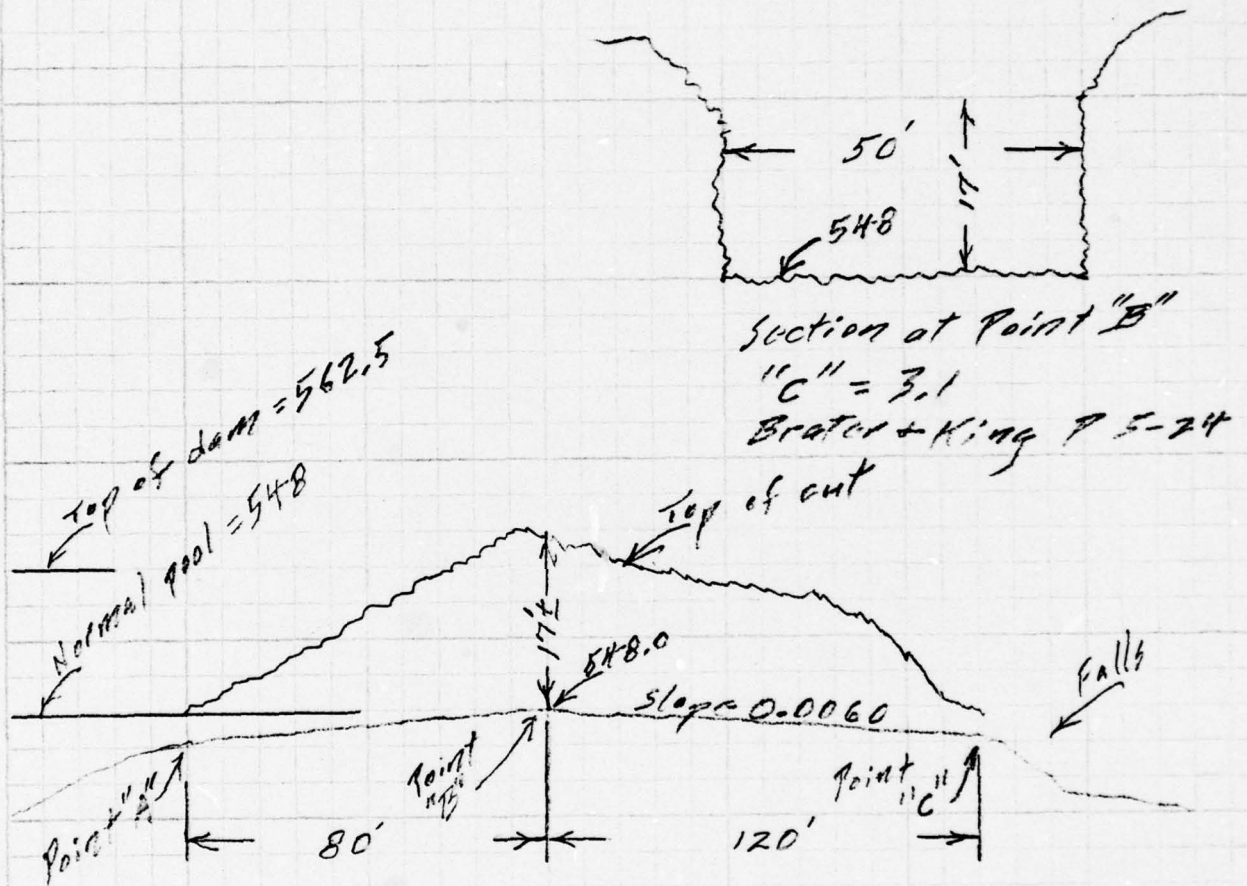 50'
17'
548
Section at Point "B"
"C" = 3.1
Brater + King P 5-24
Top of dam = 562.5
Normal pool = 548
Top of cut
17'±
548.0
Slope 0.0060
Falls
Point "A"
Point "B"
Point "C"
80'
120'